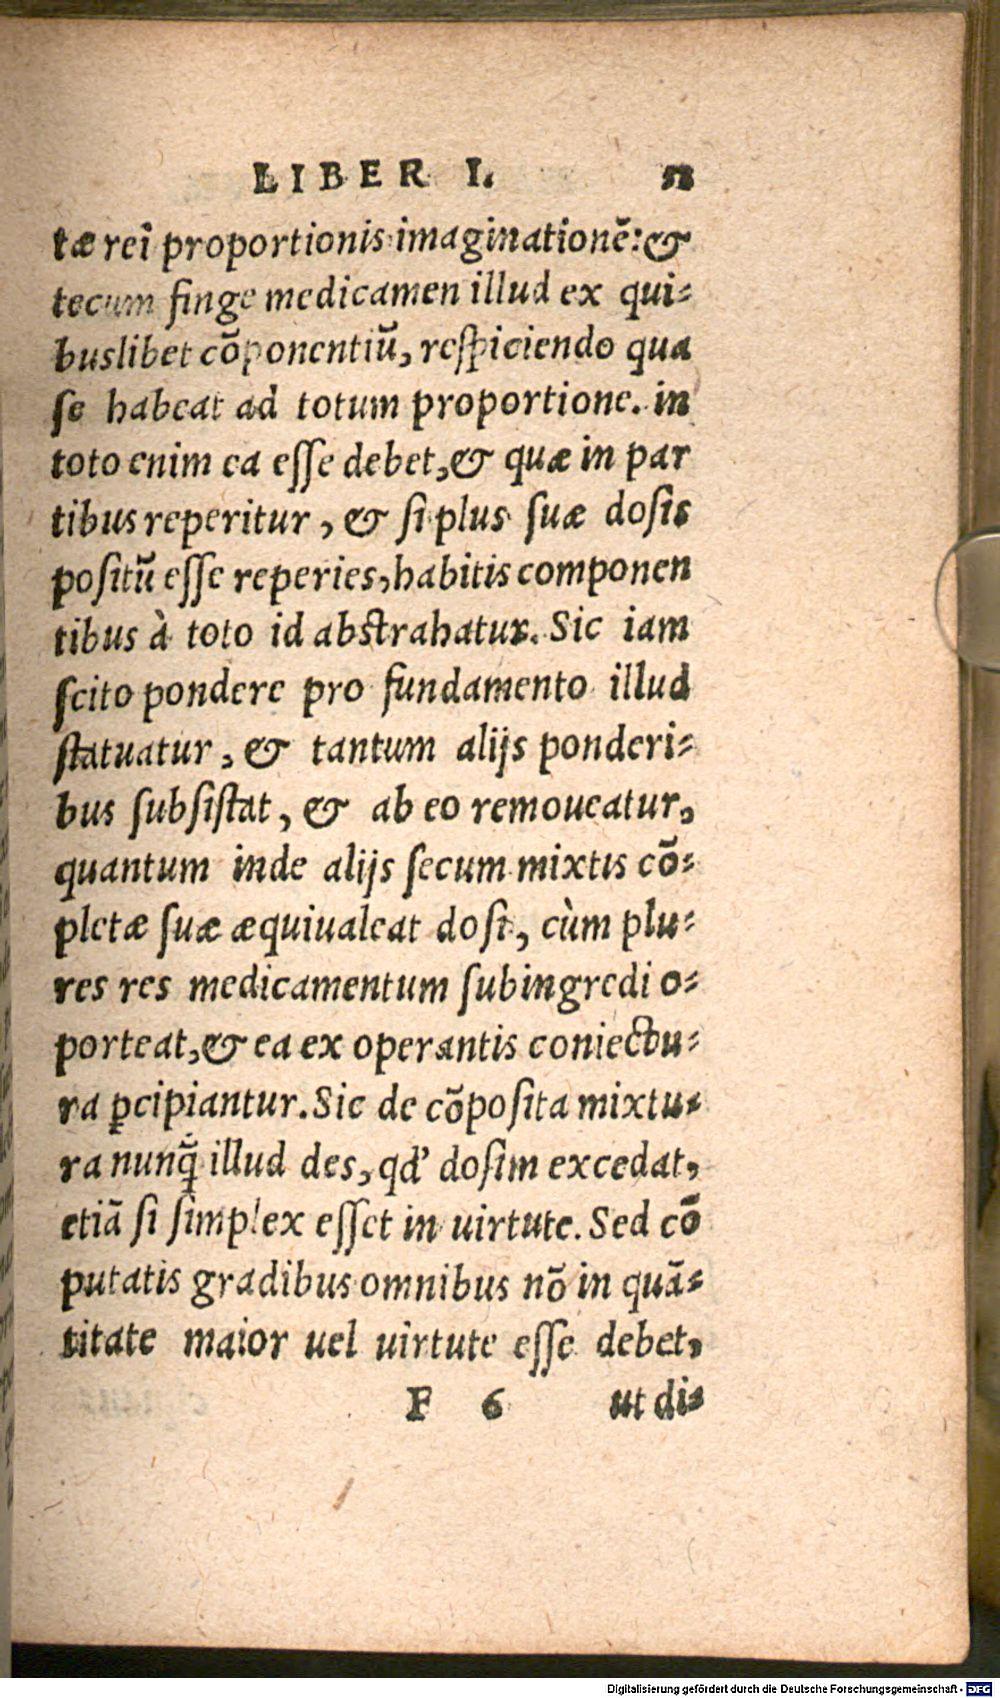 LIBER I.
tæ rei proportionis imaginationẽ: &
tecum finge medicamen illud ex qui-
buslibet cõponentiũ, respiciendo qua
se habeat ad totum proportione. in
toto enim ea esse debet, & quæ in par
tibus reperitur, & si plus suæ dosis
positũ esse reperies, habitis componen
tibus à toto id abstrahatur. Sic iam
scito pondere pro fundamento illud
statuatur, & tantum alijs ponderi-
bus subsistat, & ab eo remoueatur,
quantum inde alijs secum mixtis cõ-
pletæ suæ æquiualeat dosi, cùm plu-
res res medicamentum subingredi o-
porteat, & ea ex operantis coniectu-
ra ꝑcipiantur. Sic de cõposita mixtu-
ra nunq̃ illud des, qd' dosim excedat,
etiã si simplex esset in uirtute. Sed cõ
putatis gradibus omnibus nõ in quã-
titate maior uel uirtute esse debet,
F 6 ut di-
Digitalisierung gefördert durch die Deutsche Forschungsgemeinschaft - DFG